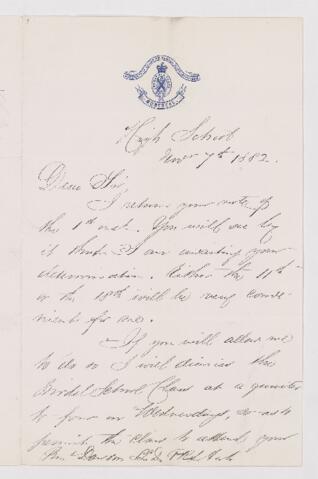 MONTREAL
High School
Nov 7th 1882.
Dear Sir,
I return your note of
the 1st inst. You will see by
it that I am awaiting your
determination. Either the 11th
or the 18th will be very conve-
nient for me.
If you will allow me
to do so I will dismiss the
Model School Class at a quarter
to four on Wednesdays, so as to
permit the class to attend your